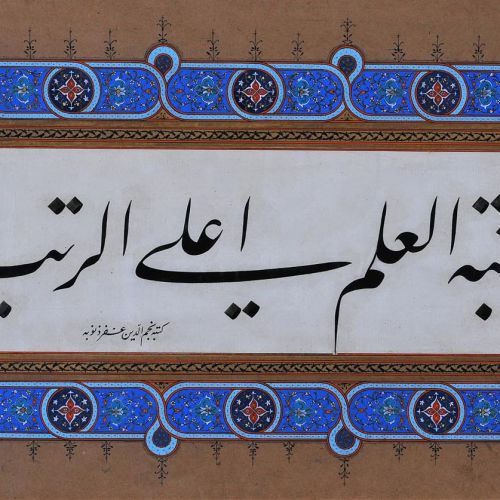 تبه العلم اعلي الرتب
كتبه نجم الدين غفر ذنوبه